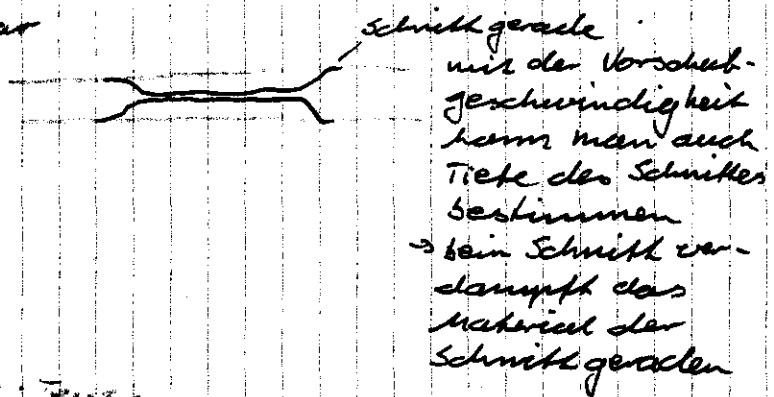 Schnittgerade
mit der Vorschub-
geschwindigkeit
kann man auch
Tiefe des Schnittes
bestimmen
→ beim Schnitt ver-
dampft das
Material der
Schnittgeraden